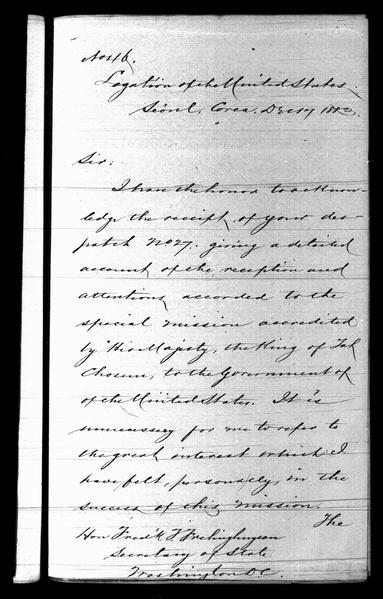 No 46.
Legation of the United States.
Seoul. Corea. Dec 17 1883.
Sir:
I have the honor to acknow-
ledge the receipt of your des-
patch No 27. giving a detailed
account of the reception and
attentions accorded to the
special mission accredited
by His Majesty, the King of Tah
Chosun, to the Government of
of the United States. It is
unnecessary for me to refer to
the great interest which I
have felt, personally, in the
success of this mission.
The
Hon Fred'k T Frelinghuysen
Secretary of State
Washington D.C.